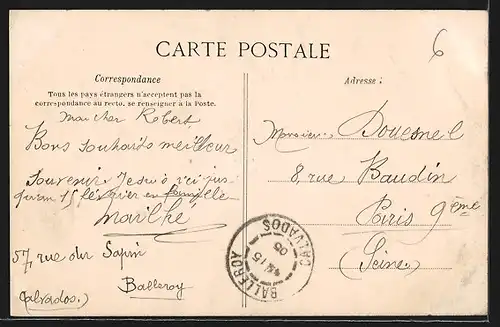 CARTE POSTALE
6
Correspondance
Tous les pays étrangers n'acceptent pas la
correspondance au recto, se renseigner à la Poste.
Mon cher Robert
Bons souhaits meilleur
souvenir Je suis ici jus-
qu'au 15 février en famille
Marthe
57, rue du Sapin
Balleroy
(Calvados.)
Adresse :
Monsieur Douesnel
8, rue Baudin
Paris 9ème
(Seine.)
BALLEROY
05
CALVADOS